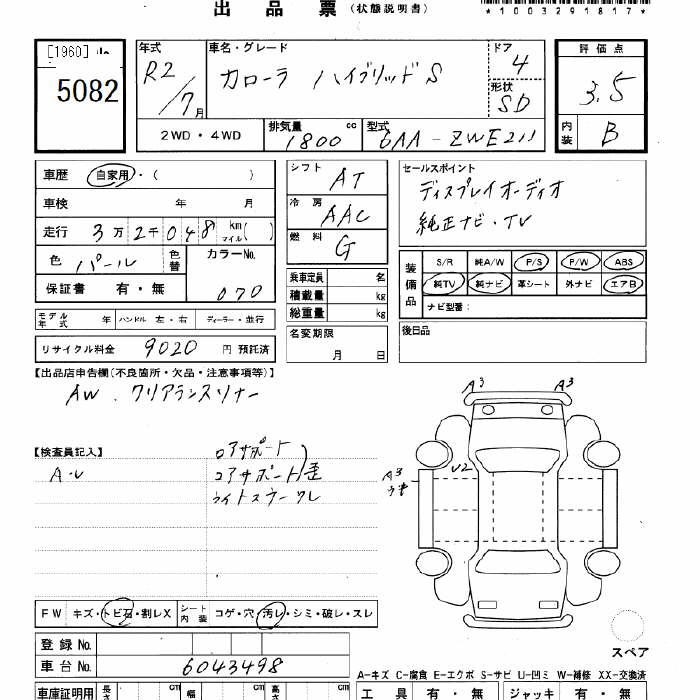 出品票 (状態説明書)
*1003291817*
[1960]
5082
年式
R2/7月
車名・グレード
カローラ ハイブリッドS
ドア
4
形状
SD
評価点
3.5
内装
B
2WD・4WD
排気量
1800 cc
型式
6AA-ZWE211
車歴 自家用・( )
車検 年 月
走行 3万2千048 km マイル( )
色 パール 色替
カラーNo.
070
保証書 有・無
シフト
AT
冷房
AAC
燃料
G
乗車定員 名
積載量 kg
総重量 kg
セールスポイント
ディスプレイオーディオ
純正ナビ・TV
装備品
S/R 純A/W P/S P/W ABS
純TV 純ナビ 革シート 外ナビ エアB
ナビ型番:
モデル年式 年 ハンドル 左・右 ディーラー・並行
リサイクル料金 9020 円 預託済
名変期限
月 日
後日品
【出品店申告欄(不良箇所・欠品・注意事項等)】
AW.クリアランスソナー
【検査員記入】
A・U
コアサポート
コアサポート歪
ライトステー
A3 A3
A3
U2
FW キズ・トビ石・割レX
シート内装 コゲ・穴・汚レ・シミ・破レ・スレ
登録No.
車台No. 6043498
スペア
A-キズ C-腐食 E-エクボ S-サビ U-凹ミ W-補修 XX-交換済
車庫証明用 長さ cm 幅 cm 高さ cm
工具 有・無 ジャッキ 有・無